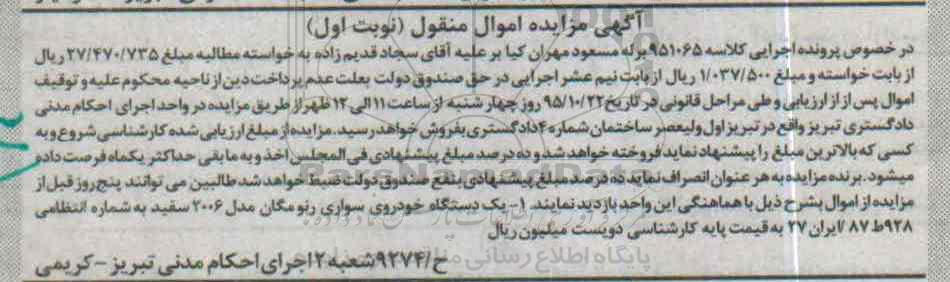 آگهی مزایده اموال منقول (نوبت اول)
در خصوص پرونده اجرایی کلاسه ۹۵۱۰۶۵ برله مسعود مهران کیا بر علیه آقای سجاد قدیم زاده به خواسته مطالبه مبلغ ۲۷/۴۷۰/۷۳۵ ریال
از بابت خواسته و مبلغ ۱/۰۳۷/۵۰۰ ریال از بابت نیم عشر اجرایی در حق صندوق دولت بعلت عدم پرداخت دین از ناحیه محکوم علیه و توقیف
اموال پس از از ارزیابی و طی مراحل قانونی در تاریخ ۹۵/۱۰/۲۲ روز چهارشنبه از ساعت ۱۱ الی ۱۲ ظهر از طریق مزایده در واحد اجرای احکام مدنی
دادگستری تبریز واقع در تبریز اول ولیعصر ساختمان شماره ۴ دادگستری بفروش خواهد رسید. مزایده از مبلغ ارزیابی شده کارشناسی شروع و به
کسی که بالاترین مبلغ را پیشنهاد نماید فروخته خواهد شد و ده درصد مبلغ پیشنهادی فی المجلس اخذ و به مابقی حداکثر یکماه فرصت داده
میشود. برنده مزایده به هر عنوان انصراف نماید ده درصد مبلغ پیشنهادی بنفع صندوق دولت ضبط خواهد شد طالبین می توانند پنج روز قبل از
مزایده از اموال بشرح ذیل با هماهنگی این واحد بازدید نمایند. ۱- یک دستگاه خودروی سواری رنو مگان مدل ۲۰۰۶ سفید به شماره انتظامی
۹۲۸ط۸۷ /ایران ۲۷ به قیمت پایه کارشناسی دویست میلیون ریال
ح/۹۲۷۴ شعبه ۲ اجرای احکام مدنی تبریز - کریمی
ParsNamadData
پایگاه اطلاع رسانی